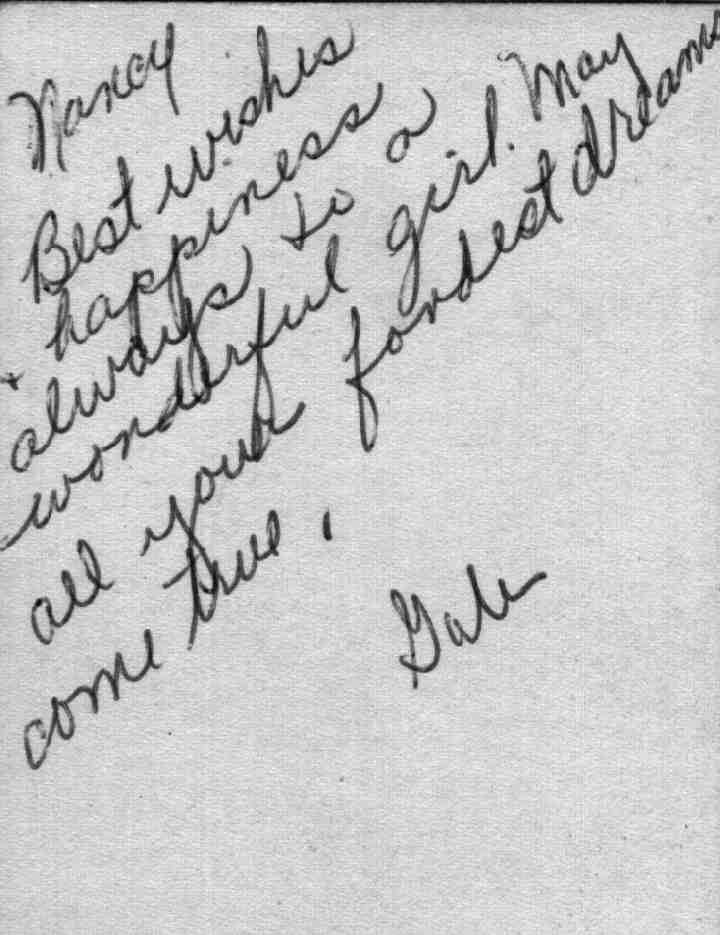 Nancy
Best wishes
+ happiness
always to a
wonderful girl. May
all your fondest dreams
come true.
Gale